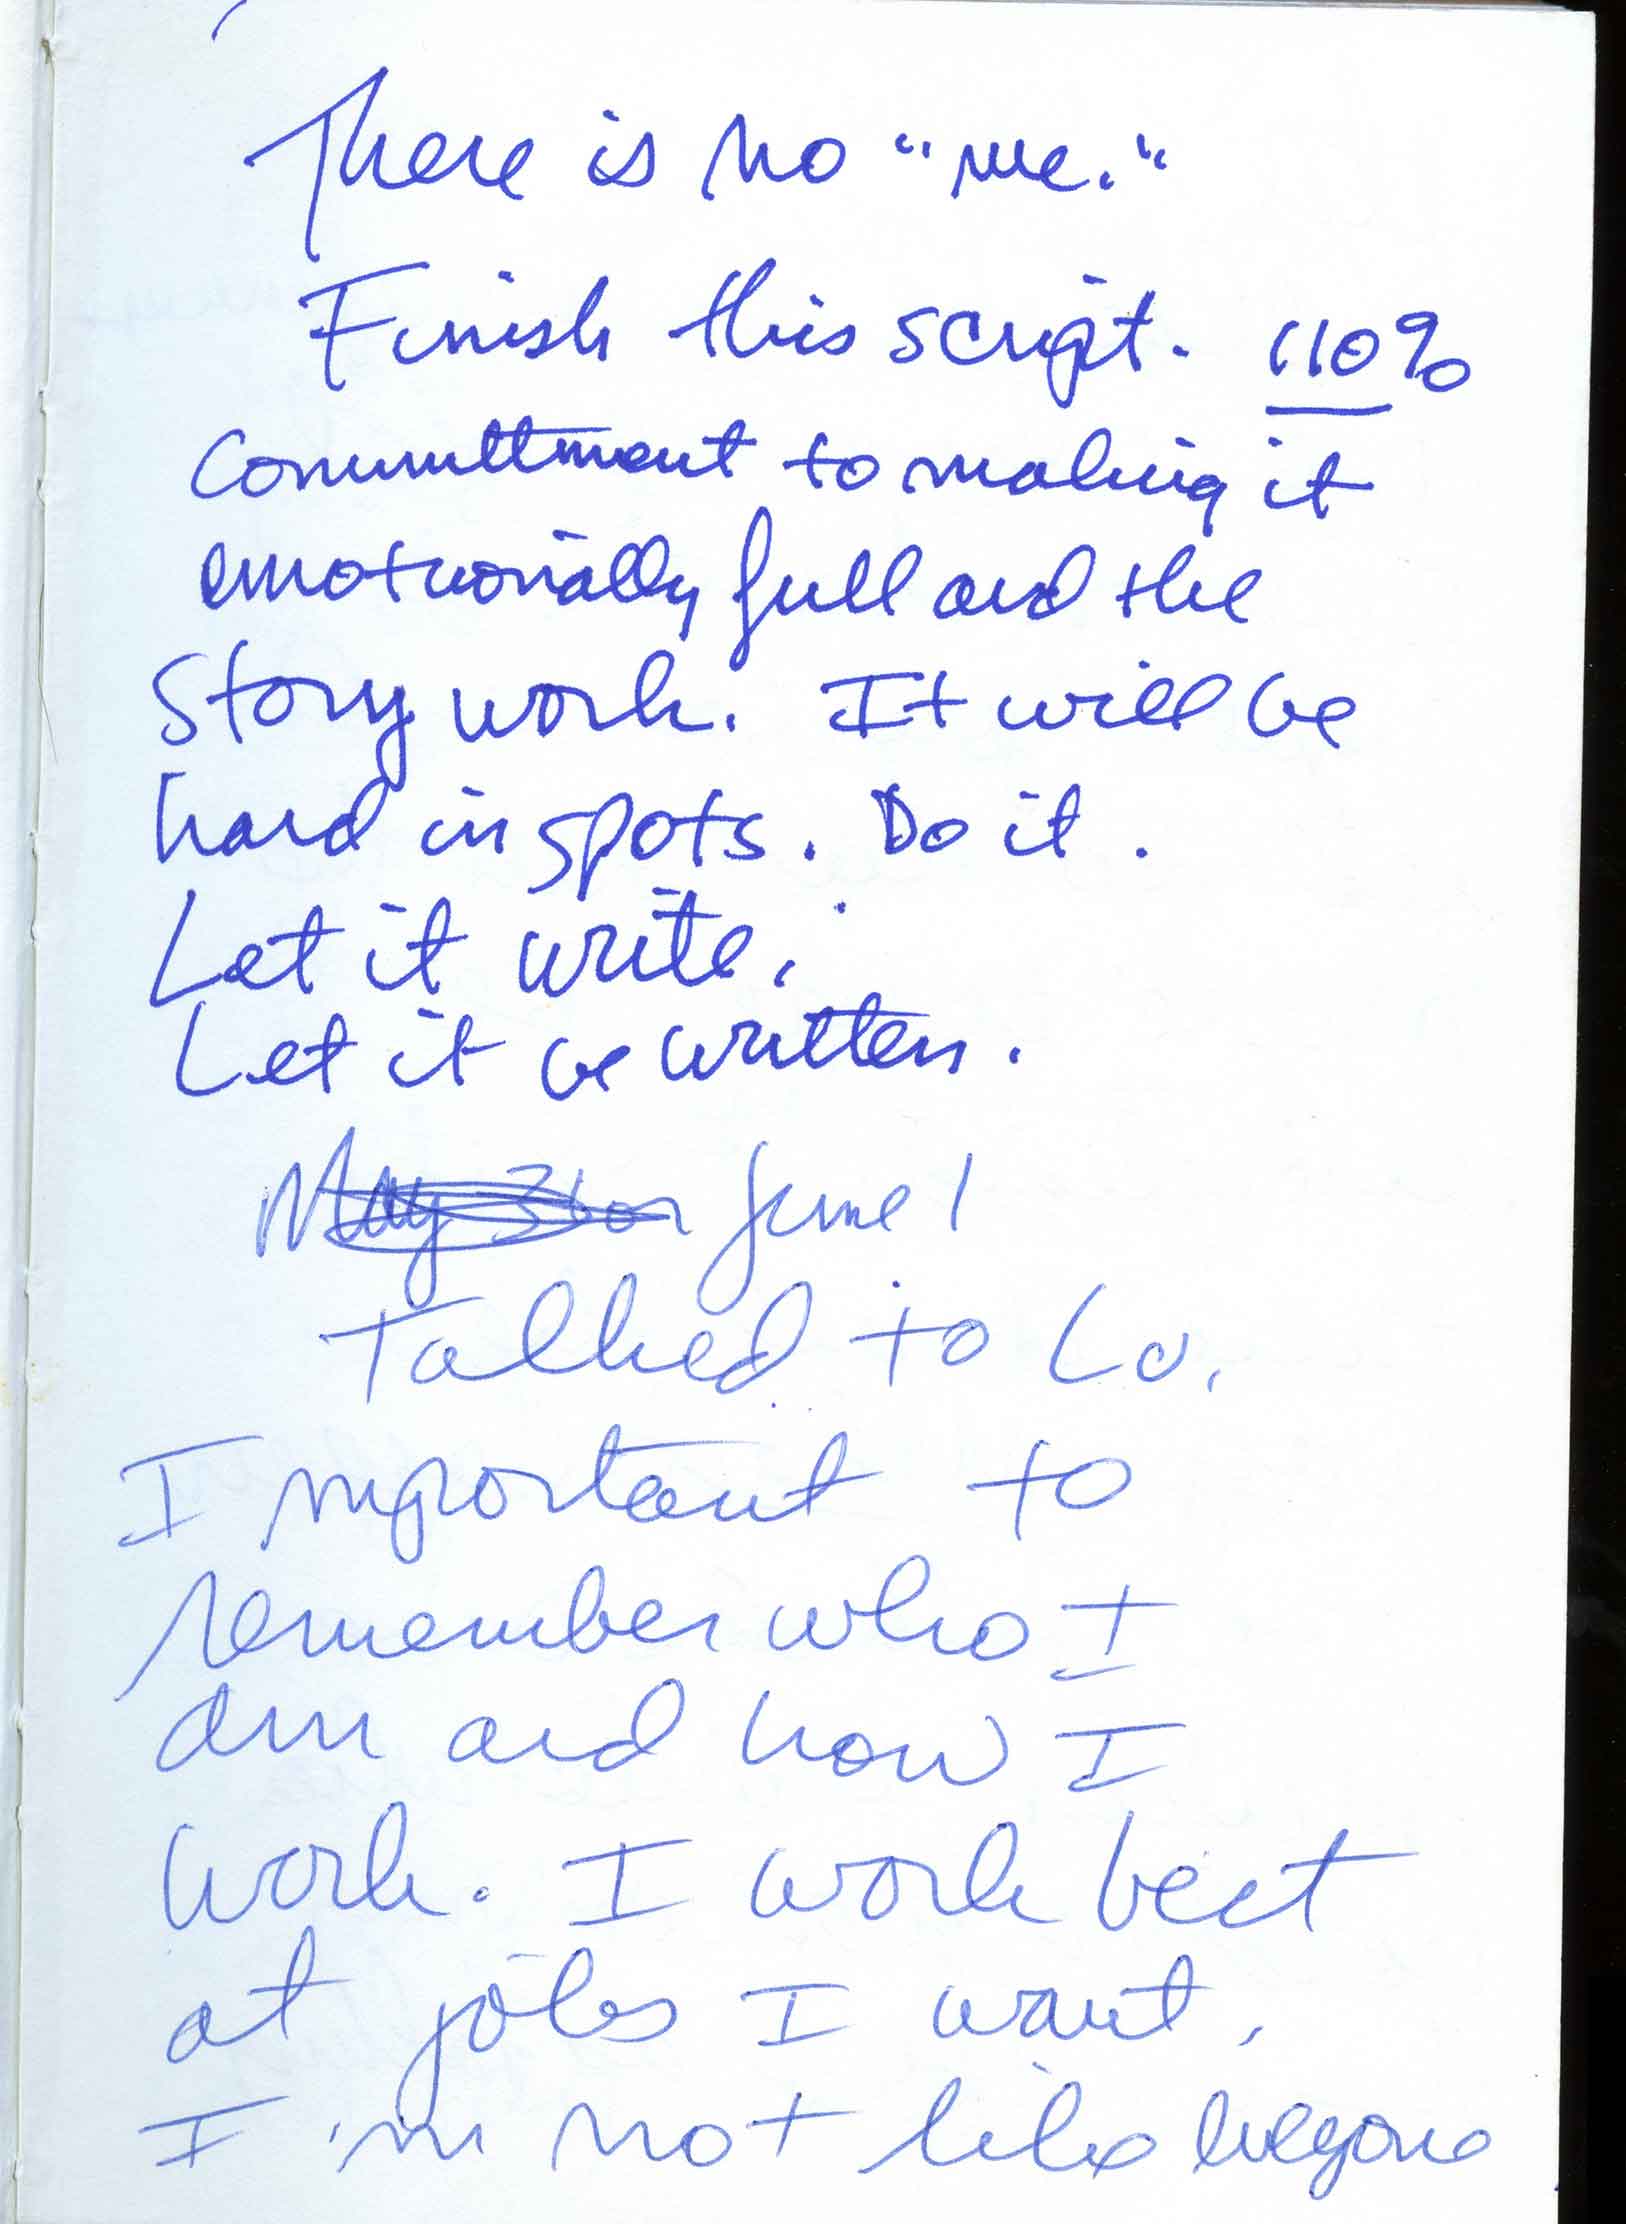 There is no "me."
Finish this script. 110%
committment to making it
emotionally full and the
story work. It will be
hard in spots. Do it.
Let it write.
Let it be written.
May 31 or June 1
Talked to Lu.
Important to
remember who I
am and how I
work. I work best
at jobs I want.
I'm not like everyone